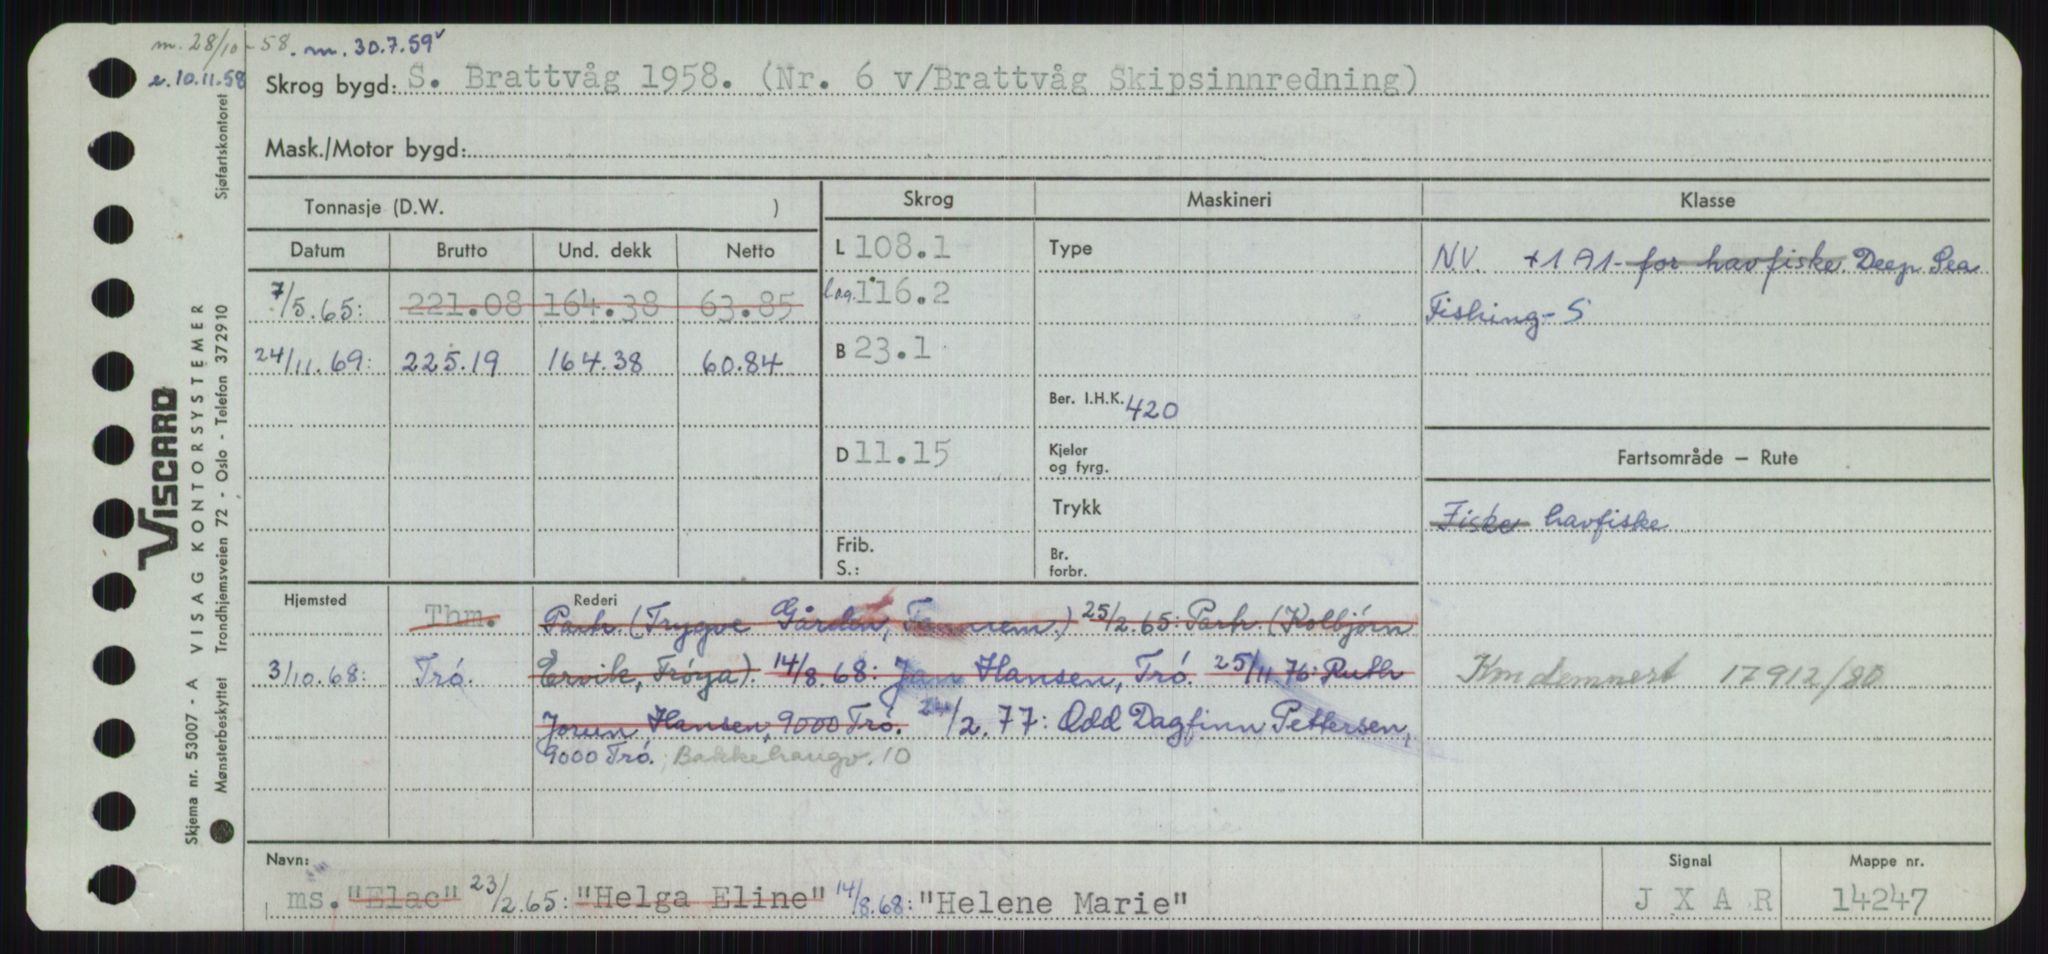 m. 28/10-58. m. 30.7.59 v
e. 10.11.58
Skrog bygd: S. Brattvåg 1958. (Nr. 6 v/Brattvåg Skipsinnredning)
Mask./Motor bygd:
Tonnasje (D.W. )
Skrog Maskineri Klasse
Datum Brutto Und. dekk Netto
7/5.65: 221.08 164.38 63.85
24/11.69: 225.19 164.38 60.84
L 108.1
l.o.a. 116.2
B 23.1
D 11.15
Frib.
S.:
Type
Ber. I.H.K. 420
Kjeler
og fyrg.
Trykk
Br.
forbr.
N.V. +1 A1- for havfiske. Deep Sea
Fishing - S
Fartsområde — Rute
Fiske havfiske
Kondemnert 17912/80
Hjemsted Thm. Rederi
Parh. (Trygve Gården, ) 25/2.65: Parh. (Kolbjørn
3/10.68: Trø. Ervik, Frøya). 14/8.68: Jan Hansen, Trø. 25/11.76: Ruth
Jorun Hansen, 9000 Trø. 24/2.77: Odd Dagfinn Pettersen,
9000 Trø.; Bakkehaugv. 10
Navn:
ms. "Elac" 23/2.65: "Helga Eline" 14/8.68: "Helene Marie"
Signal
J X A R
Mappe nr.
14247
Sjøfartskontoret
VISCARD
VISAG KONTORSYSTEMER
Skjema nr. 53007 - A
Mønsterbeskyttet Trondhjemsveien 72 - Oslo - Telefon 372910